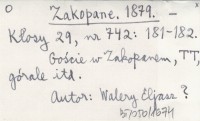 O Zakopane. 1879. –
Kłosy 29, nr 742: 181-182.
Goście w Zakopanem, TT,
górale itd.
Autor: Walery Eljasz ?